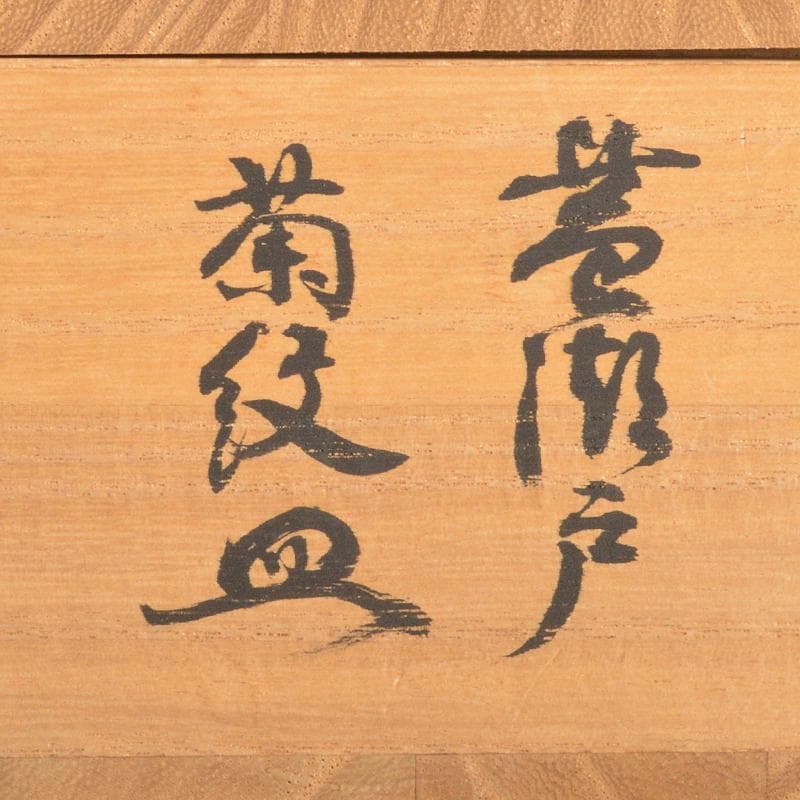 黄瀬戸
菊紋皿